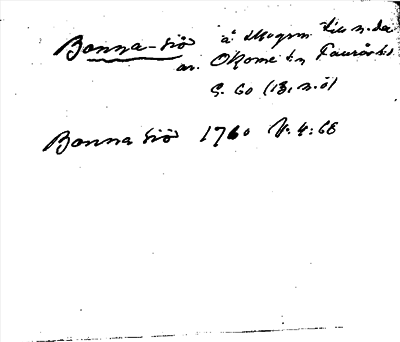 Bonna-sjö å Mogrm till n. del
av. Okome sn Faurås hd
S. 60 (13, n. ö)
Bonna Siö 1760 V: 4: 68